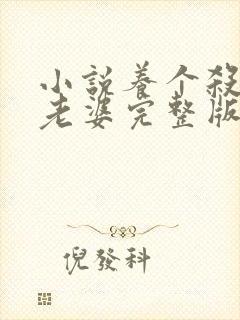 小説養个殺
老婆完整版
倪發科